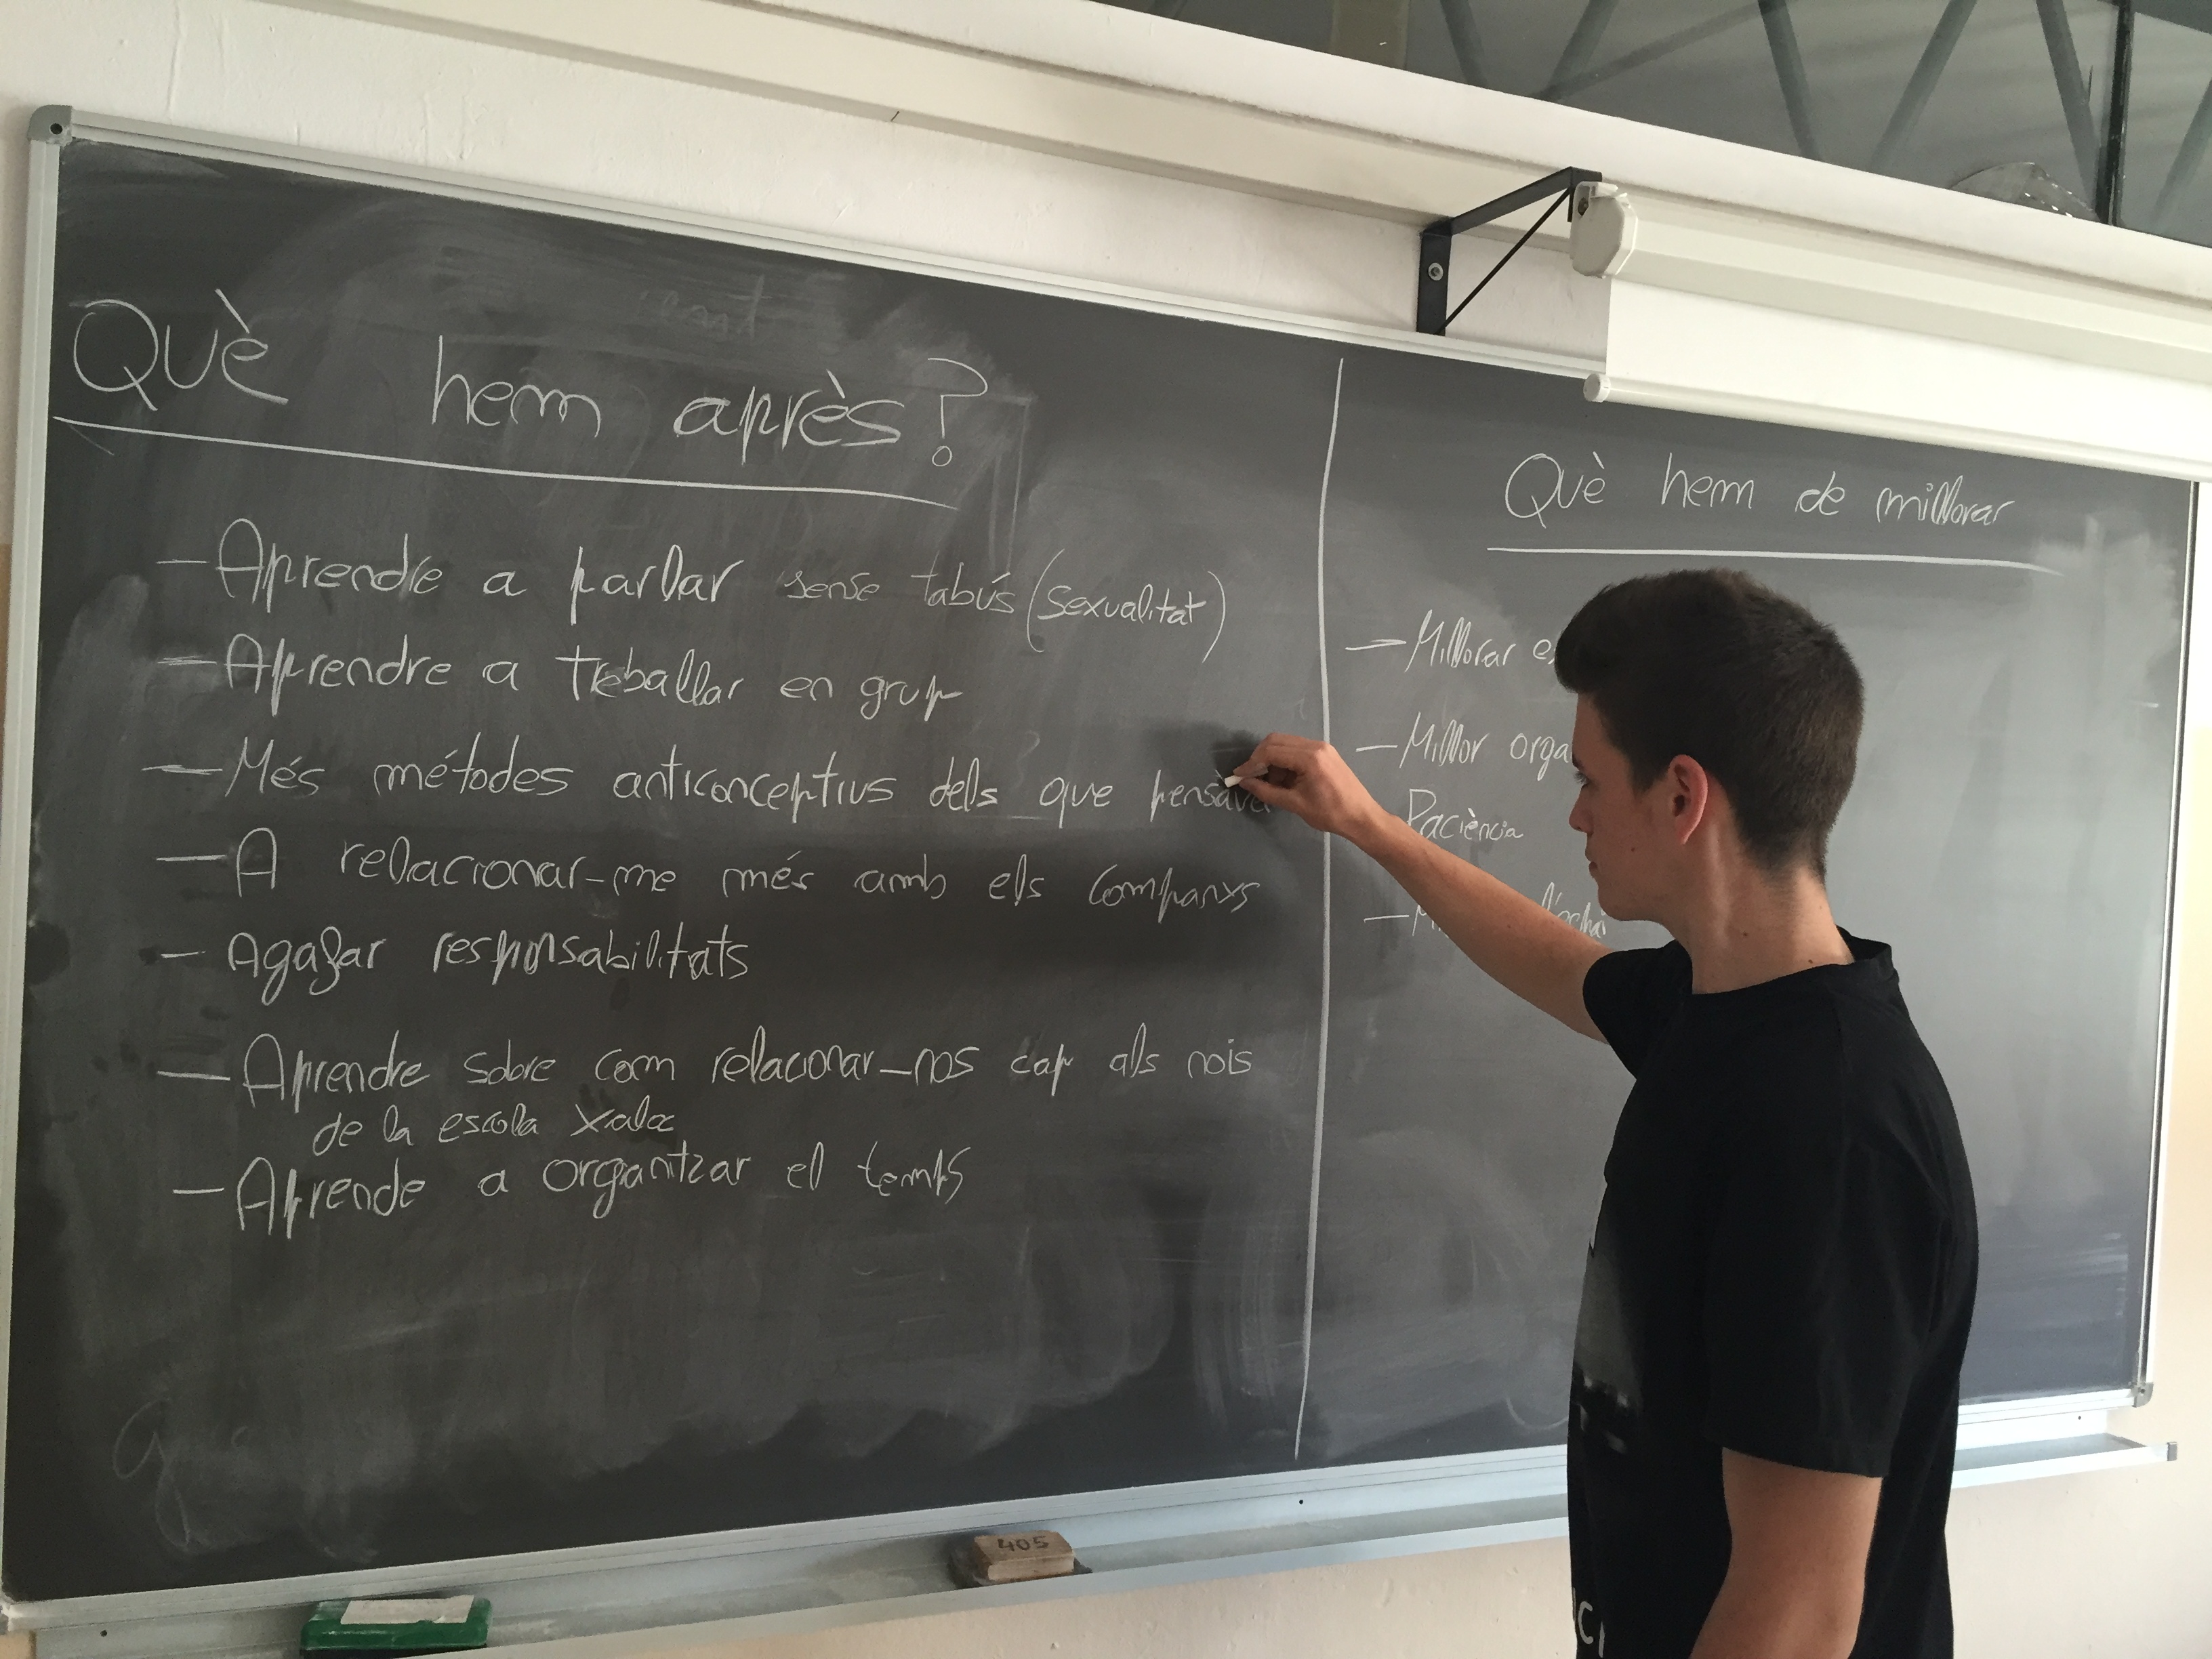 Què hem après?
- Aprendre a parlar sense tabús (sexualitat)
- Aprendre a treballar en grup
- Més métodes anticonceptius dels que pensava
- A relacionar-me més amb els companys
- Agafar responsabilitats
- Aprendre sobre com relacionar-nos cap als nois
de la escola Xaloc
- Aprende a organitzar el temps
Què hem de millorar
- Millorar
- Millor orga
Paciència
405